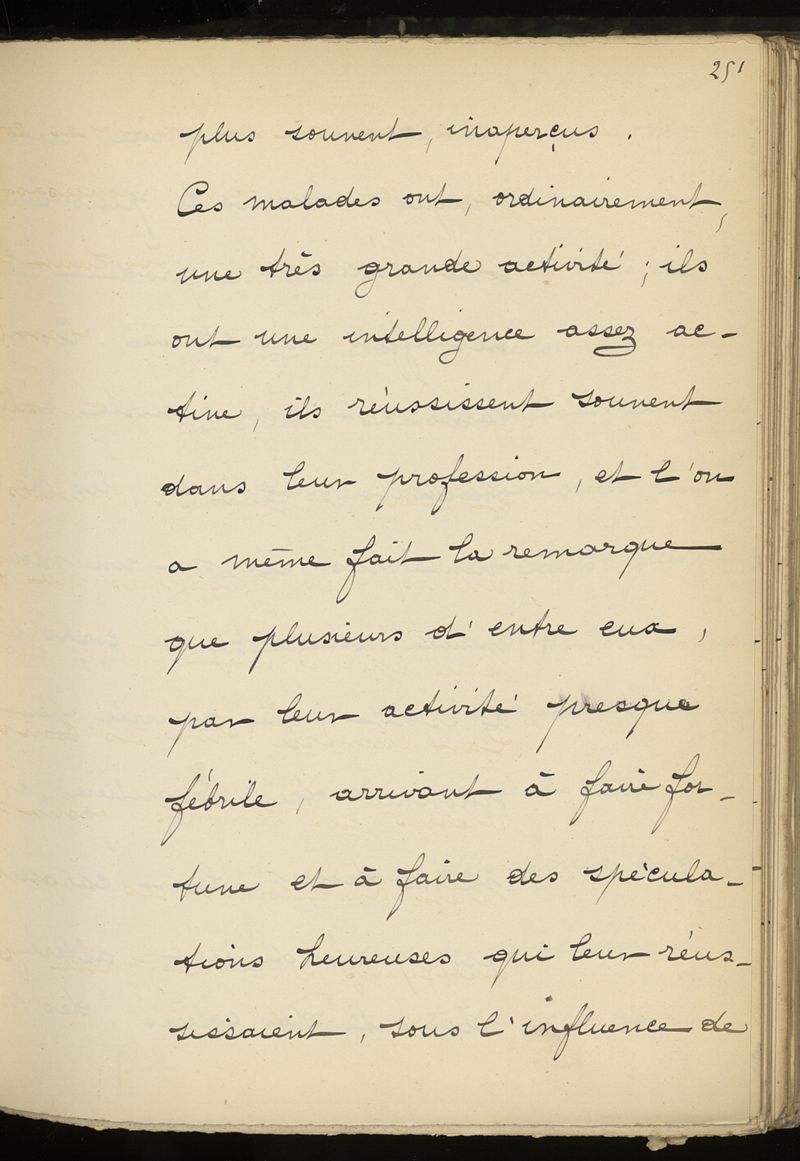 251
plus souvent, inaperçus.
Ces malades ont, ordinairement,
une très grande activité ; ils
ont une intelligence assez ac-
tive, ils réussissent souvent
dans leur profession, et l'on
a même fait la remarque
que plusieurs d'entre eux,
par leur activité presque
fébrile, arrivant à faire for-
tune et à faire des spécula-
tions heureuses qui leur réus-
sissaient, sous l'influence de